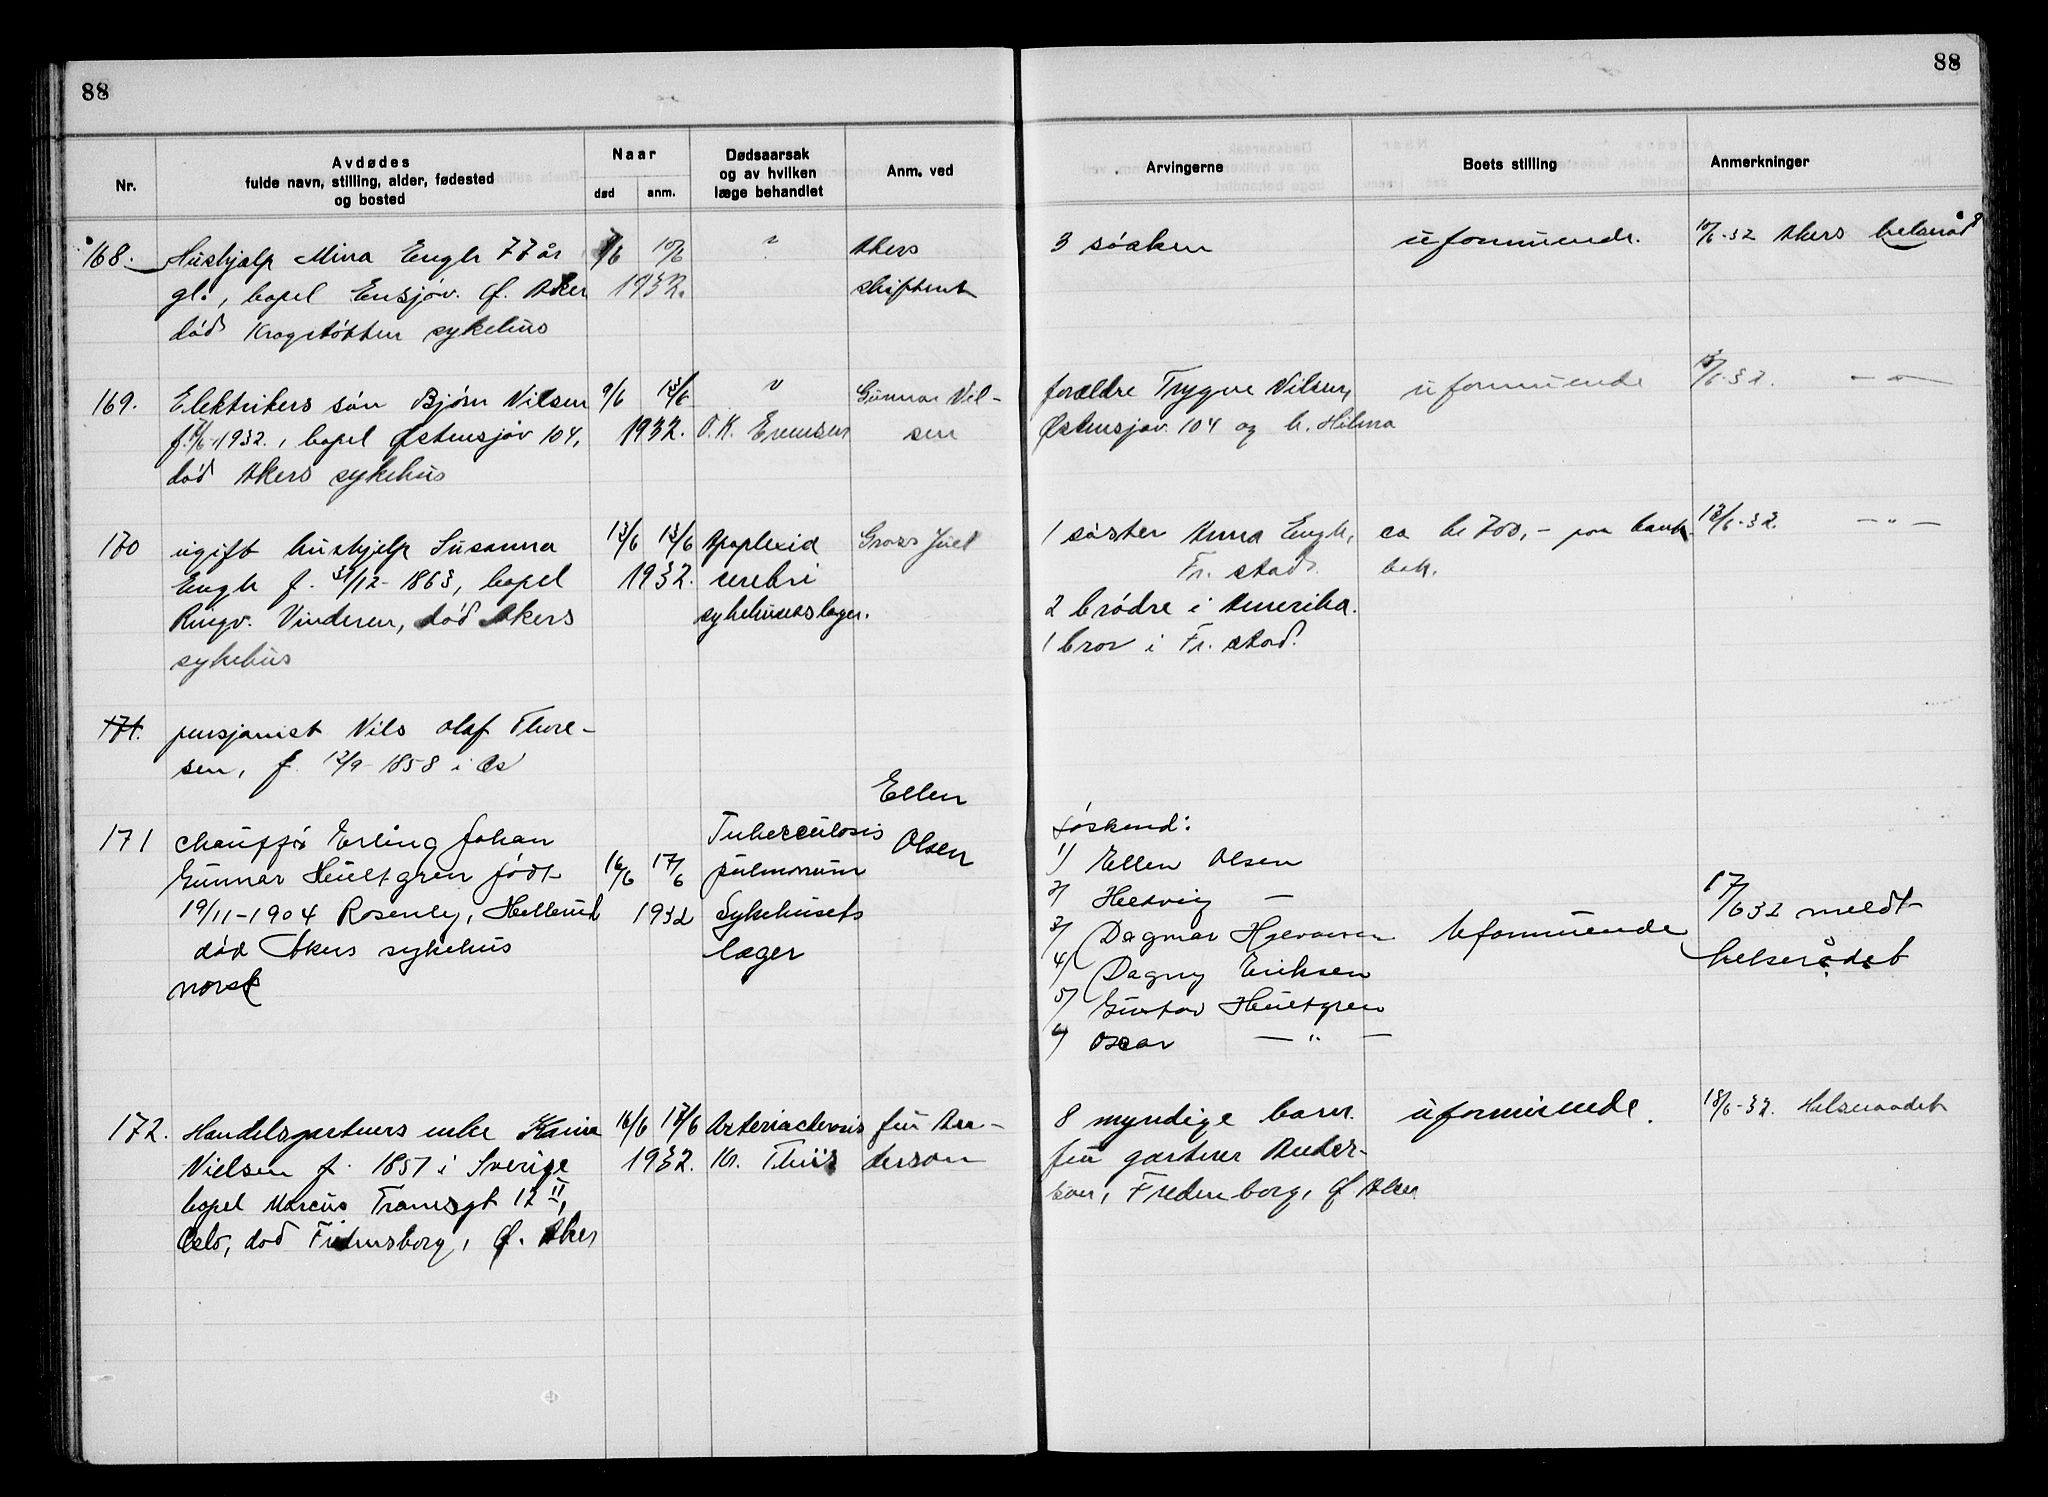 88
88
Nr.
Avdødes
fulde navn, stilling, alder, fødested
og bosted
Naar
død
anm.
Dødsaarsak
og av hvilken
læge behandlet
Anm. ved
Arvingerne
Boets stilling
Anmerkninger
168.
Hushjelp Mina Engh 77 år
gl., bopel Ensjøv. Ø. Aker
død Krogstøtten sykehus
7/6 10/6
1932.
Akers
skifteret
3 søsken
uformuende.
10/6-32 Akers helseråd
169.
Elektrikers søn Bjørn Nilsen
f. 7/6-1932., bopel Østensjøv 104,
død Akers sykehus
9/6 13/6
1932.
O. K. Evensen
Gunnar Nil-
sen
forældre Trygve Nilsen,
Østensjøv. 104 og h. Hilma
uformuende
13/6-32. — " —
170
ugift hushjelp Susanna
Engh f. 31/12-1863, bopel
Ringv. Vinderen, død Akers
sykehus
13/6 13/6
1932.
Apoplexia
cerebri
sykehusets læger.
Gross Juel
1 søster Anna Engh,
Fr. stad.
2 brødre i Amerika.
1 bror i Fr. stad.
ca kr 700,- paa bank
bok.
13/6-32. — " —
171.
pensjonist Nils Olaf Thore-
sen, f. 12/9-1858 i Os
171
chauffør Erling Johan
Gunnar Hultgren født
19/11-1904 Rosenly, Hellerud
død Akers sykehus
norsk
16/6 17/6
1932
Tuberculosis
pulmonum
Sykehusets
læger
Ellen
Olsen
Søskend:
1) Ellen Olsen
2) Hedvig —
3) Dagmar
4) Dagny Eriksen
5) Gustav Hultgren
6) Oscar — " —
Uformuende
17/6 32 meldt
helserådet
172.
Handelsgartners enke
Nielsen f. 1857 i Sverige
bopel Marcus Tranesgt 12 II,
Oslo, død Fredensborg, Ø. Aker
16/6 17/6
1932.
Kr. Thiis
fru An-
derson
8 myndige barn.
fru gartner Ander-
son, Fredensborg, Ø Aker
uformuende.
18/6-32. Helseraadet